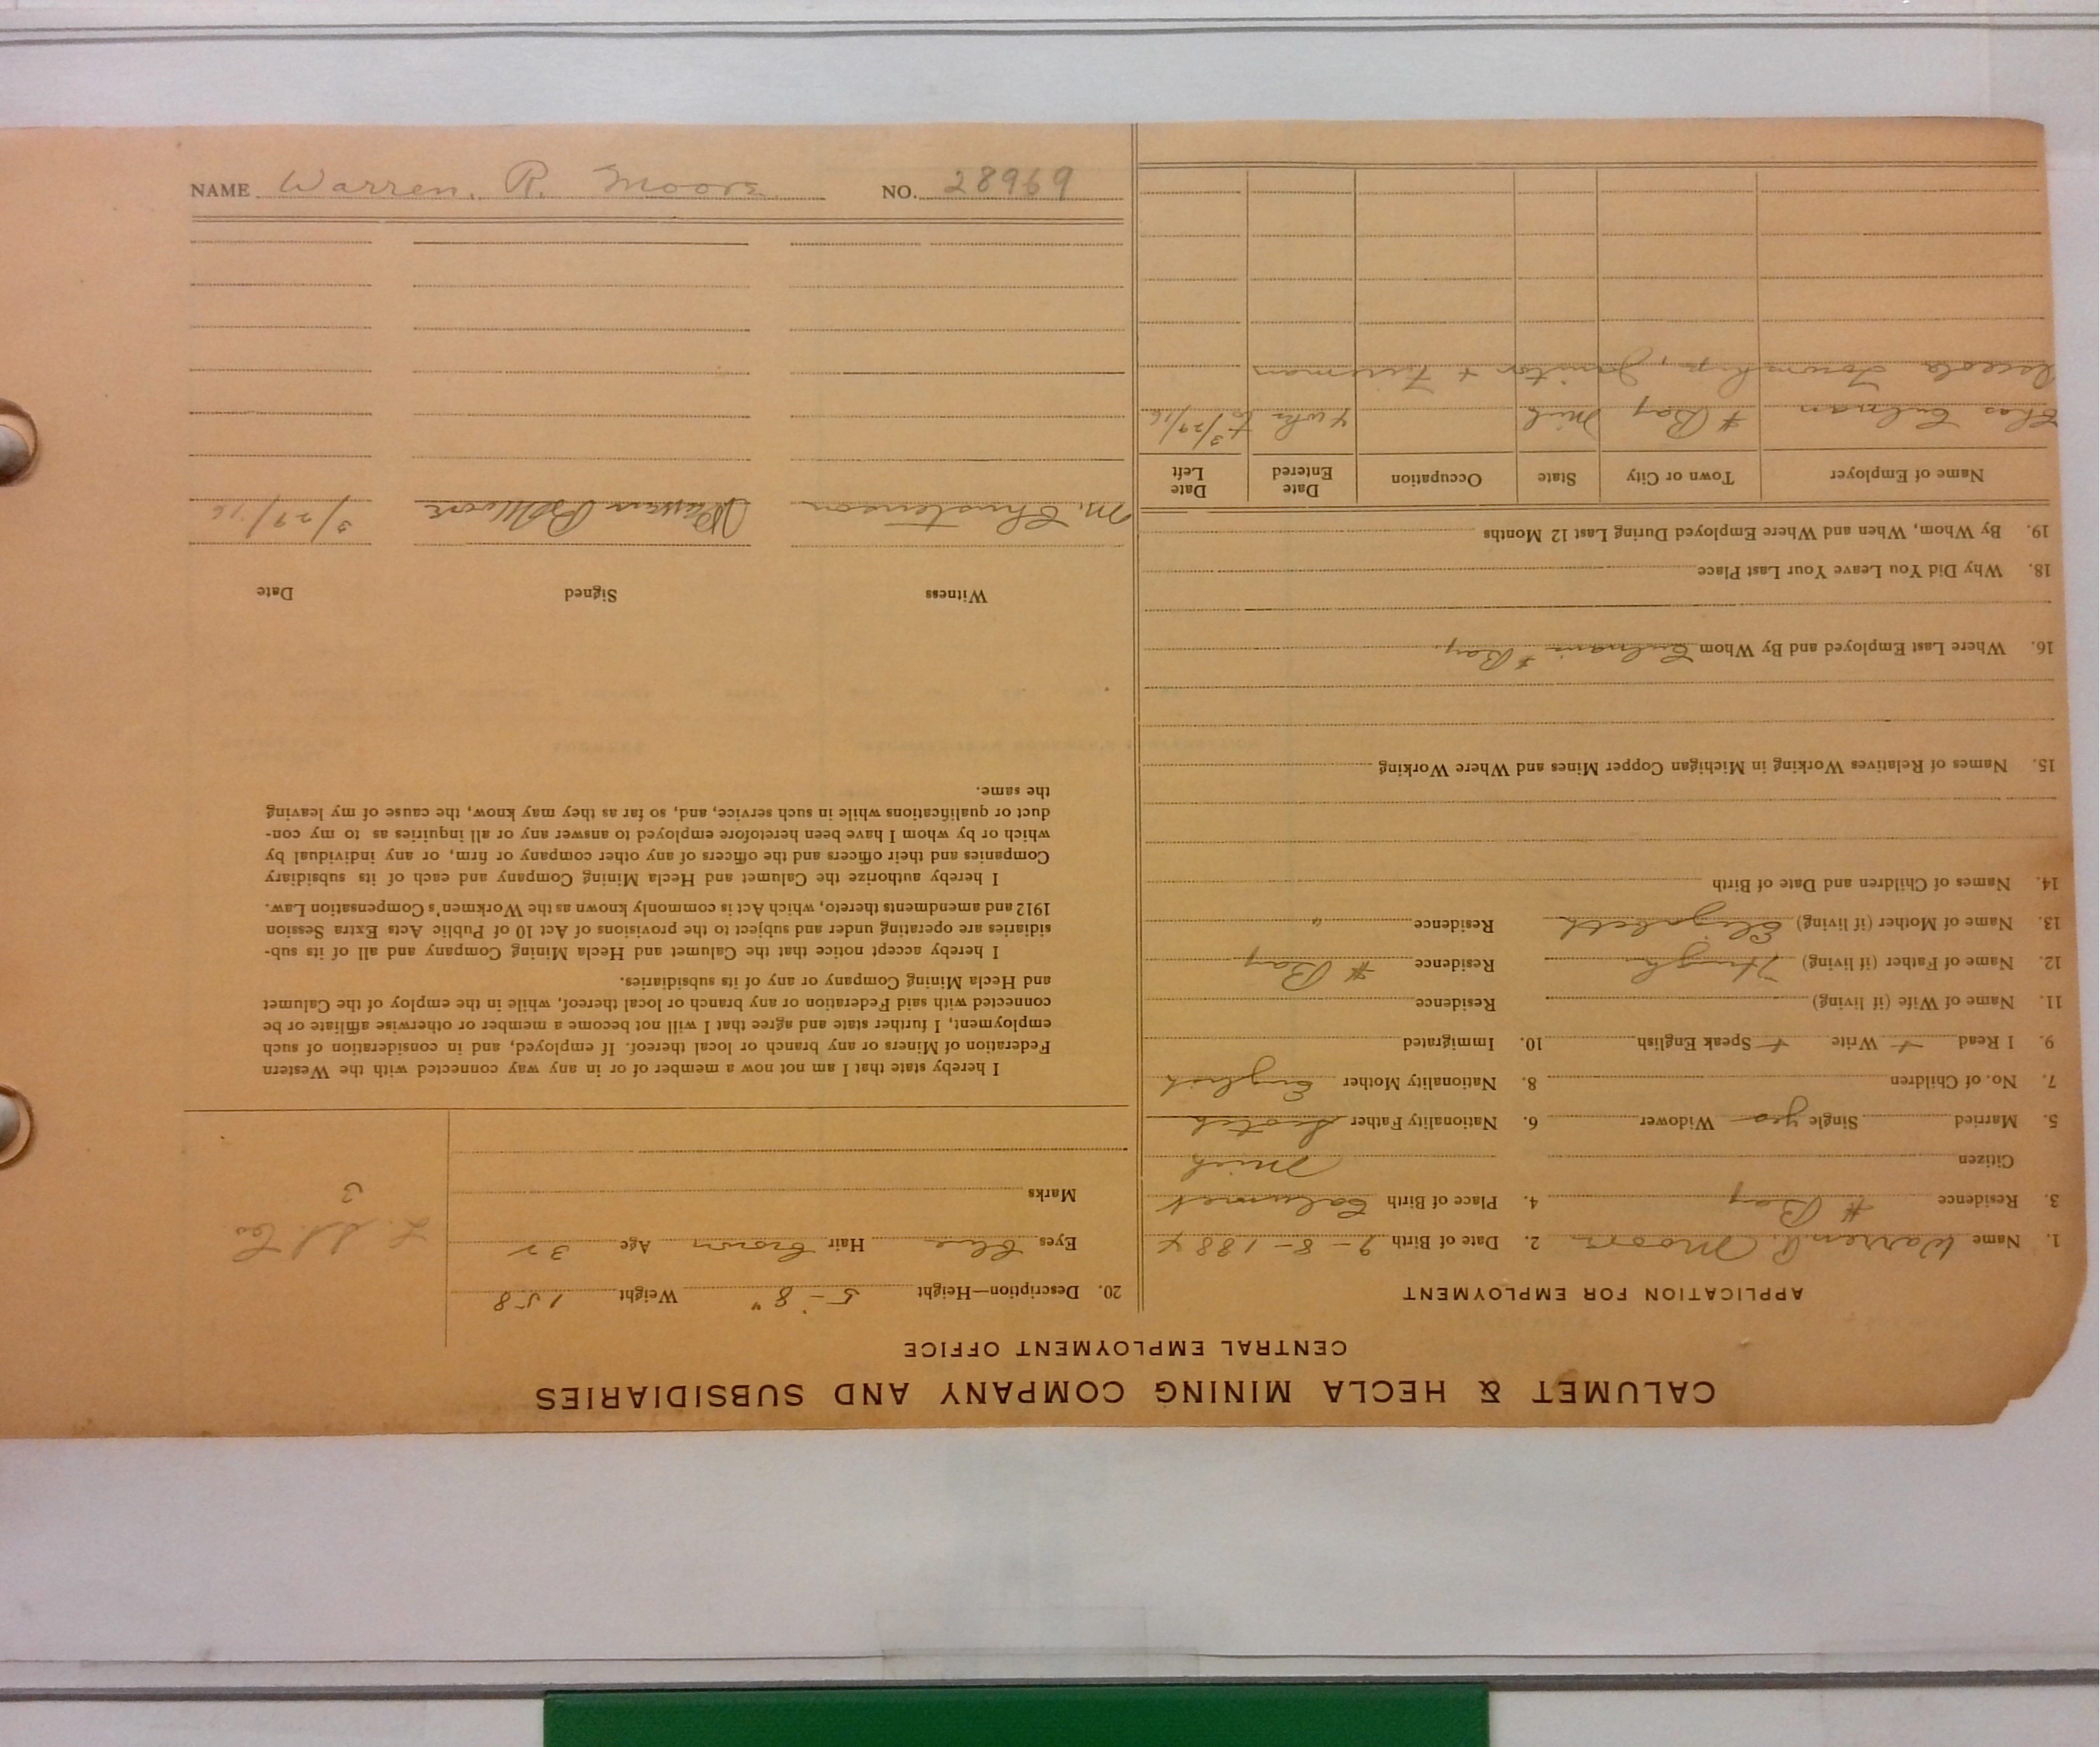 CALUMET & HECLA MINING COMPANY AND SUBSIDIARIES
CENTRAL EMPLOYMENT OFFICE
APPLICATION FOR EMPLOYMENT
1. Name Warren R. Moore 2. Date of Birth 9-8-1884
3. Residence # Bay 4. Place of Birth Calumet
Citizen Mich
5. Married Single yes Widower 6. Nationality Father Scotch
7. No. of Children 8. Nationality Mother English
9. I Read + Write + Speak English 10. Immigrated
11. Name of Wife (if living) Residence
12. Name of Father (if living) Hugh Residence # Bay
13. Name of Mother (if living) Elizabeth Residence "
14. Names of Children and Date of Birth
15. Names of Relatives Working in Michigan Copper Mines and Where Working
16. Where Last Employed and By Whom # Bay.
18. Why Did You Leave Your Last Place
19. By Whom, When and Where Employed During Last 12 Months
Name of Employer Town or City State Occupation Date Entered Date Left
Chas # Bay Mich 3/29/16
Osceola Township, Janitor + Fireman
20. Description—Height 5-8" Weight 158
Eyes blue Hair brown Age 32
Marks
3
I hereby state that I am not now a member of or in any way connected with the Western
Federation of Miners or any branch or local thereof. If employed, and in consideration of such
employment, I further state and agree that I will not become a member or otherwise affiliate or be
connected with said Federation or any branch or local thereof, while in the employ of the Calumet
and Hecla Mining Company or any of its subsidiaries.
I hereby accept notice that the Calumet and Hecla Mining Company and all of its sub-
sidiaries are operating under and subject to the provisions of Act 10 of Public Acts Extra Session
1912 and amendments thereto, which Act is commonly known as the Workmen's Compensation Law.
I hereby authorize the Calumet and Hecla Mining Company and each of its subsidiary
Companies and their officers and the officers of any other company or firm, or any individual by
which or by whom I have been heretofore employed to answer any or all inquiries as to my con-
duct or qualifications while in such service, and, so far as they may know, the cause of my leaving
the same.
Witness Signed Date
M. Christenson Warren R Moore 3/29/16
NAME Warren. R. Moore NO. 28969